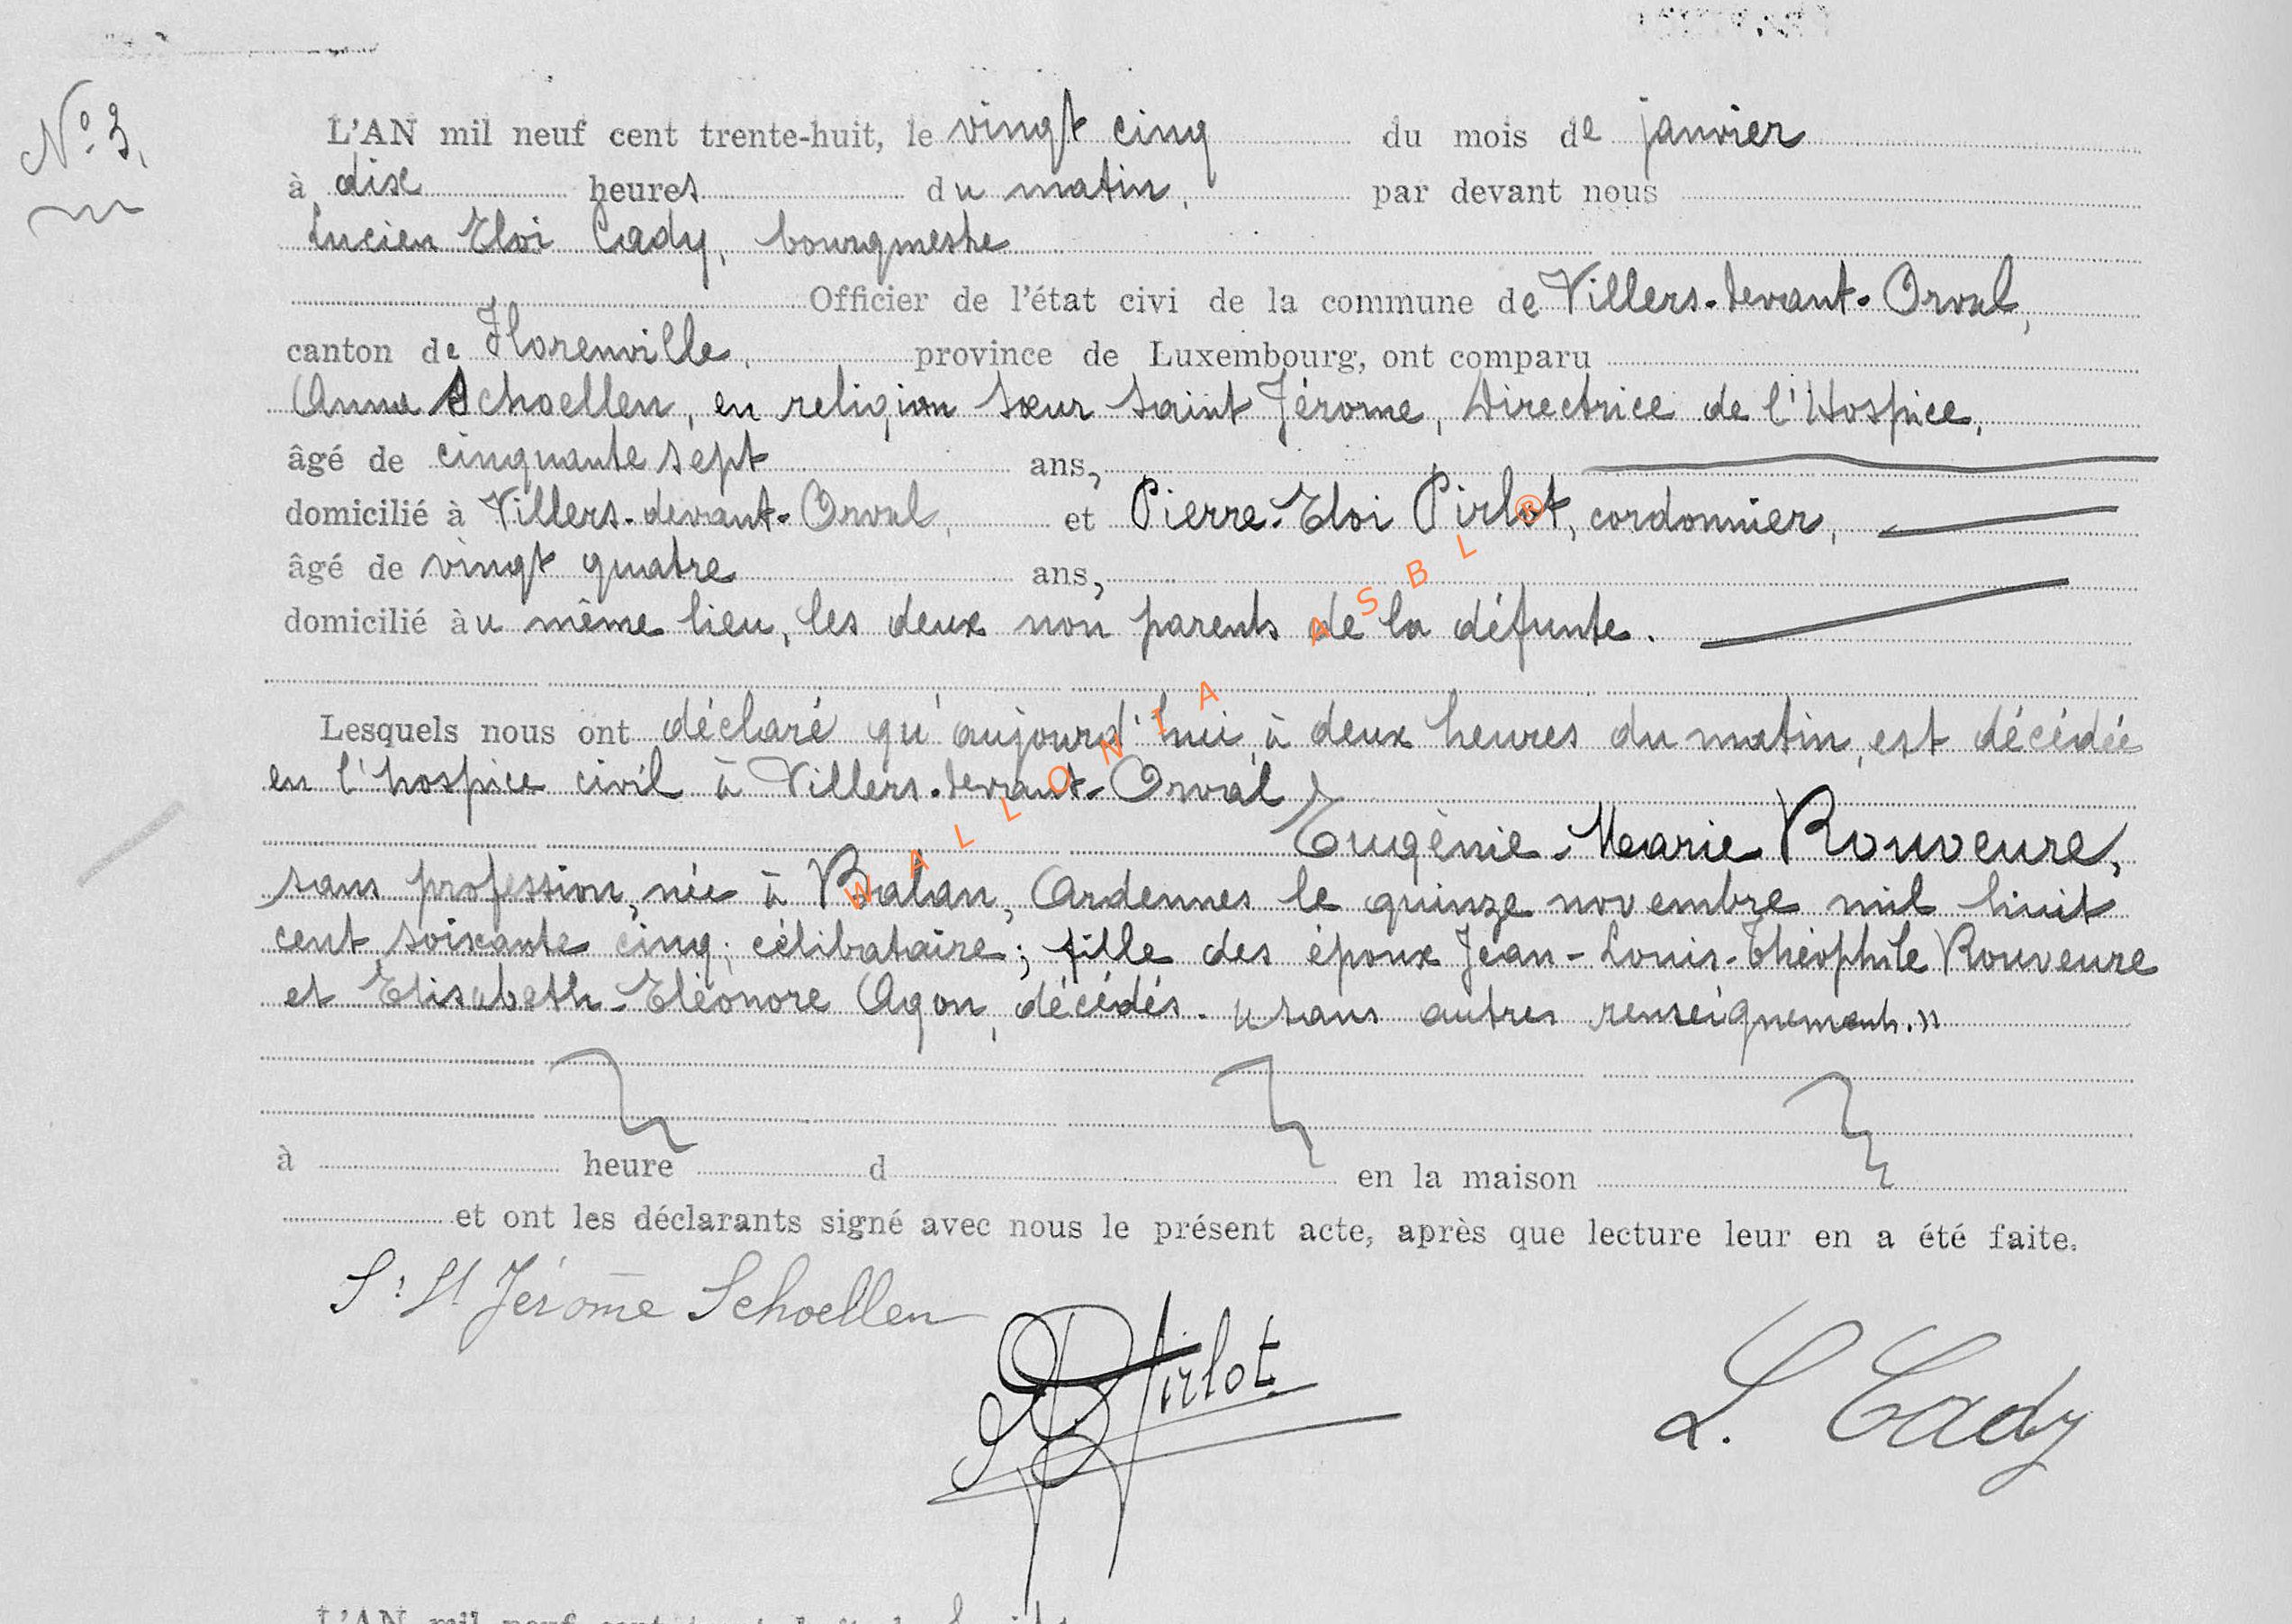 N° 3.
L'AN mil neuf cent trente-huit, le vingt cinq du mois de janvier
à dix heures du matin, par devant nous
Lucien Eloi Cady, bourgmestre
Officier de l'état civi de la commune de Villers-devant-Orval,
canton de Florenville, province de Luxembourg, ont comparu
Anna Schoellen, en religion Sœur Saint Jérome, Directrice de l'Hospice,
âgé de cinquante sept ans,
domicilié à Villers-devant-Orval, et Pierre-Eloi Pirlot, cordonnier,
âgé de vingt quatre ans,
domicilié àu même lieu, les deux non parents de la défunte.
Lesquels nous ont déclaré qu'aujourd'hui, à deux heures du matin, est décédée
en l'hospice civil à Villers-devant-Orval,
Eugènie-Marie Rouveure,
sans profession, née à Balan, Ardennes le quinze novembre mil huit
cent soixante cinq; célibataire; fille des époux Jean-Louis-Théophile Rouveure
et Elisabeth-Eléonore Agon, décédés. "sans autres renseignements."
à heure d en la maison
et ont les déclarants signé avec nous le présent acte, après que lecture leur en a été faite.
Sr St Jérôme Schoellen
Pirlot
L. Cady
WALLONIA ASBL ®